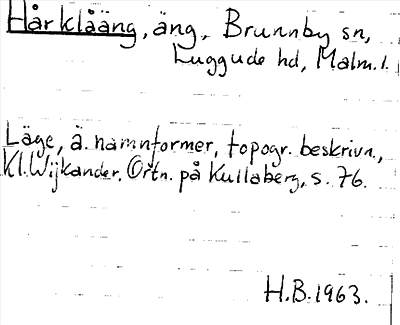 Hårklååäng, äng, Brunnby sn,
Luggude hd, Malm. l.
Läge, ä. namnformer, topogr. beskrivn.,
Kl. Wijkander. Ortn. på Kullaberg, s. 76.
H.B. 1963.